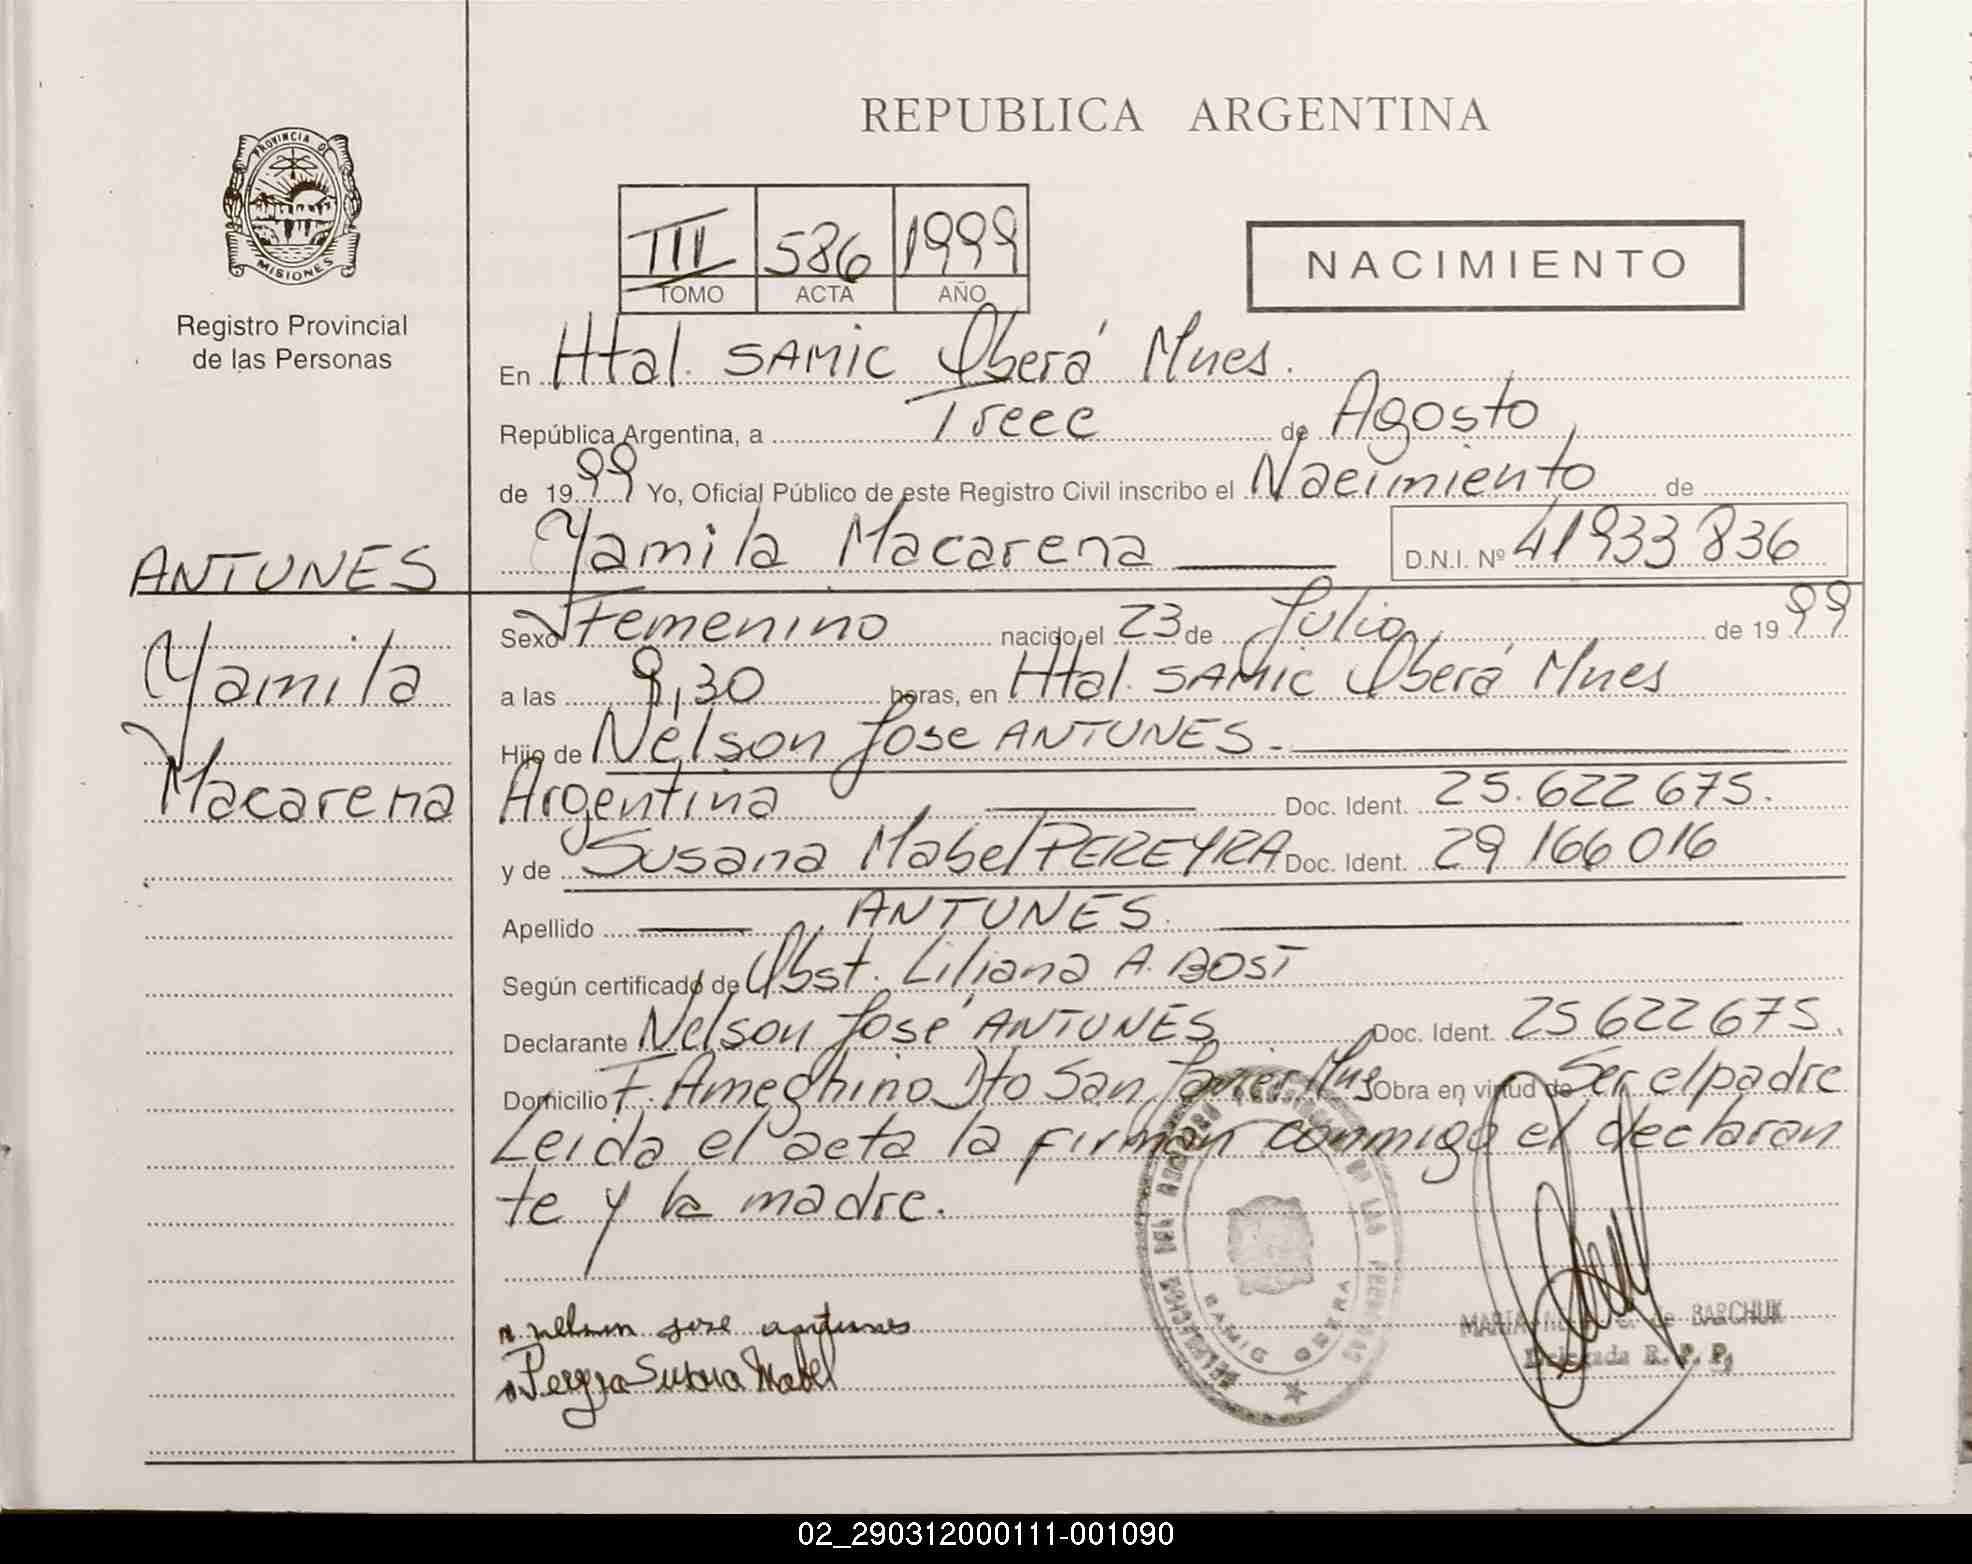 REPUBLICA ARGENTINA
PROVINCIA DE
MISIONES
Registro Provincial
de las Personas
III 586 1999
TOMO ACTA AÑO
NACIMIENTO
En Htal. SAMIC Oberá Mnes.
República Argentina, a Trece de Agosto
de 1999 Yo, Oficial Público de este Registro Civil inscribo el Nacimiento de
Yamila Macarena D.N.I. Nº 41933836
ANTUNES
Yamila
Macarena
Sexo Femenino nacido el 23 de Julio de 1999
a las 9,30 horas, en Htal. SAMIC Oberá Mnes
Hijo de Nelson Jose ANTUNES.
Argentina Doc. Ident. 25.622 675.
y de Susana Mabel PEREYRA Doc. Ident. 29 166 016
Apellido ANTUNES.
Según certificado de Obst. Liliana A. BOST
Declarante Nelson José ANTUNES Doc. Ident. 25 622 675.
Domicilio F. Ameghino Dto San Javier Mns Obra en virtud de Ser el padre
Leida el acta la firman conmigo el declaran
te y la madre.
nelson jose antunes
Pereyra Susana Mabel
DEL REGISTRO PROVINCIAL DE LAS PERSONAS
SAMIC OBERA
MARIA de BARCHUK
Delegada R. P. P.
02_290312000111-001090